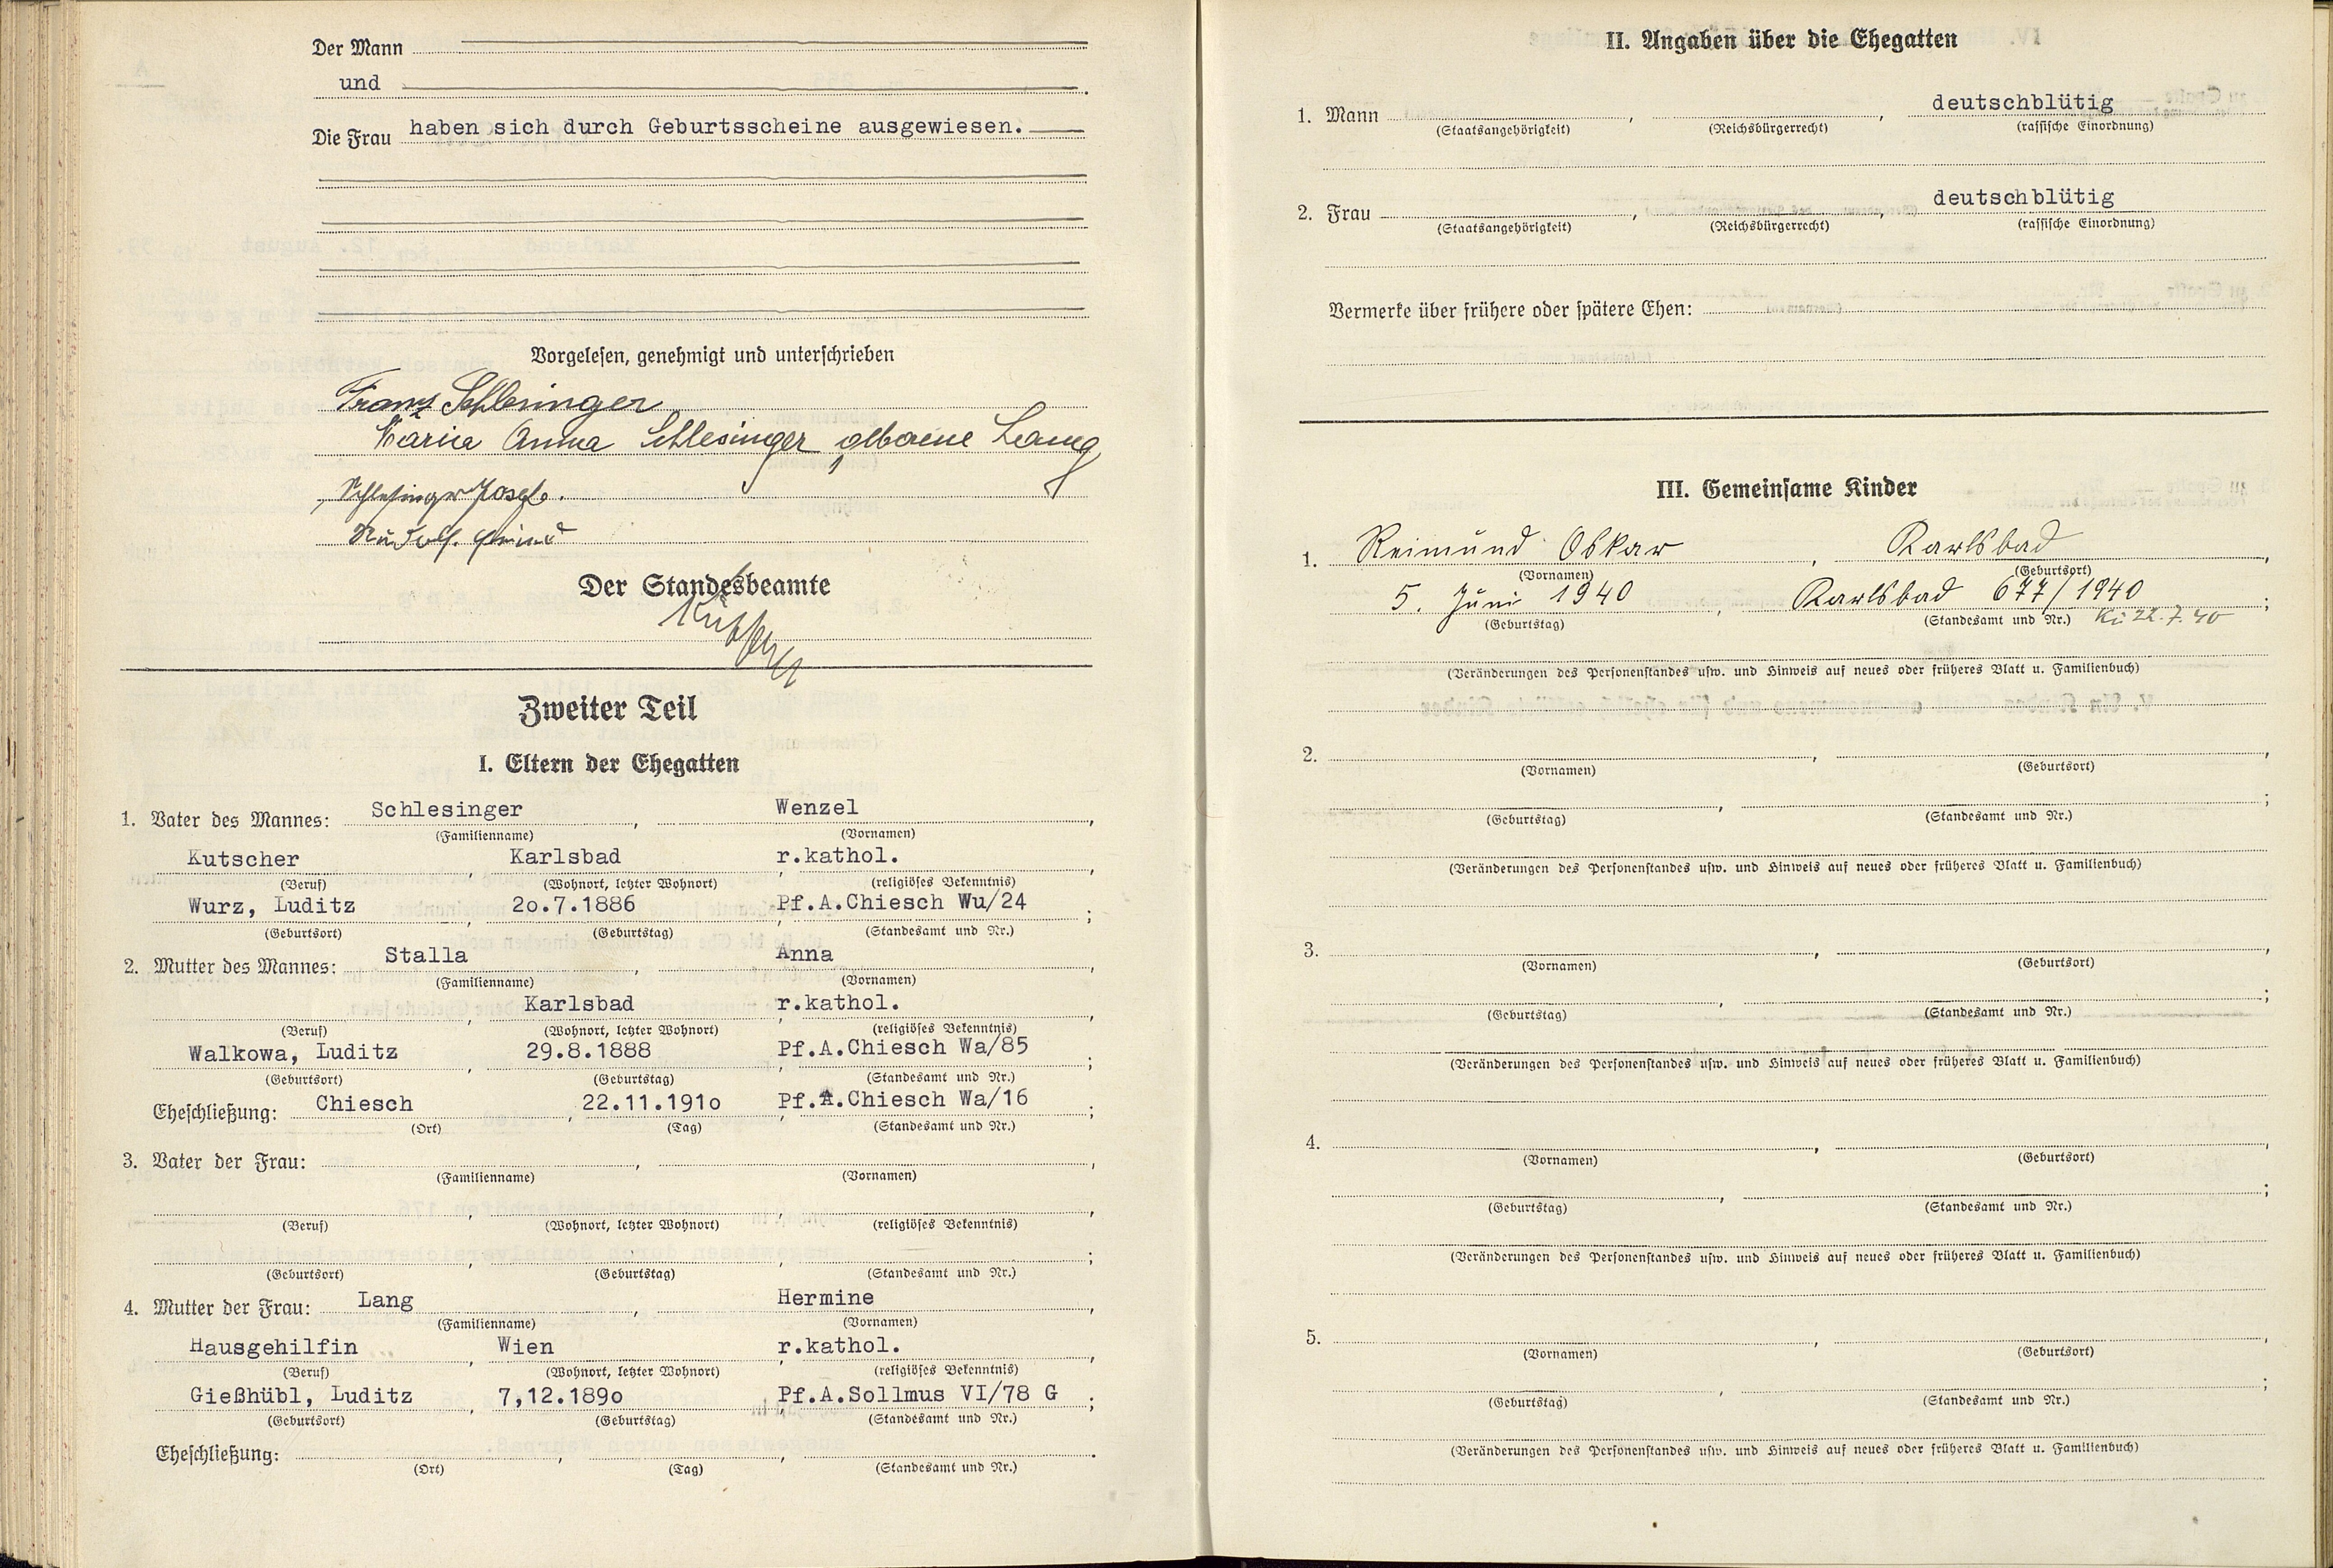 Der Mann
und
Die Frau haben sich durch Geburtsscheine ausgewiesen.
Vorgelesen, genehmigt und unterschrieben
Franz Schlesinger
Maria Anna Schlesinger geborene Lang
Schlesinger Josef.
Rudolf
Der Standesbeamte
Zweiter Teil
I. Eltern der Ehegatten
1. Vater des Mannes: Schlesinger, Wenzel,
(Familienname) (Vornamen)
Kutscher, Karlsbad, r.kathol.,
(Beruf) (Wohnort, letzter Wohnort) (religiöses Bekenntnis)
Wurz, Luditz, 2o.7.1886, Pf.A.Chiesch Wu/24;
(Geburtsort) (Geburtstag) (Standesamt und Nr.)
2. Mutter des Mannes: Stalla, Anna,
(Familienname) (Vornamen)
, Karlsbad, r.kathol.,
(Beruf) (Wohnort, letzter Wohnort) (religiöses Bekenntnis)
Walkowa, Luditz, 29.8.1888, Pf.A.Chiesch Wa/85;
(Geburtsort) (Geburtstag) (Standesamt und Nr.)
Eheschließung: Chiesch, 22.11.191o, Pf.A.Chiesch Wa/16;
(Ort) (Tag) (Standesamt und Nr.)
3. Vater der Frau: , ,
(Familienname) (Vornamen)
, , ,
(Beruf) (Wohnort, letzter Wohnort) (religiöses Bekenntnis)
, , ;
(Geburtsort) (Geburtstag) (Standesamt und Nr.)
4. Mutter der Frau: Lang, Hermine,
(Familienname) (Vornamen)
Hausgehilfin, Wien, r.kathol.,
(Beruf) (Wohnort, letzter Wohnort) (religiöses Bekenntnis)
Gießhübl, Luditz, 7,12.189o, Pf.A.Sollmus VI/78 G;
(Geburtsort) (Geburtstag) (Standesamt und Nr.)
Eheschließung: , , .
(Ort) (Tag) (Standesamt und Nr.)
II. Angaben über die Ehegatten
1. Mann , , deutschblütig
(Staatsangehörigkeit) (Reichsbürgerrecht) (rassische Einordnung)
2. Frau , , deutschblütig
(Staatsangehörigkeit) (Reichsbürgerrecht) (rassische Einordnung)
Vermerke über frühere oder spätere Ehen:
III. Gemeinsame Kinder
1. Reimund Oskar, Karlsbad,
(Vornamen) (Geburtsort)
5. Juni 1940, Karlsbad 677/1940;
(Geburtstag) (Standesamt und Nr.) Kü 22.7.40
(Veränderungen des Personenstandes usw. und Hinweis auf neues oder früheres Blatt u. Familienbuch)
2. , ,
(Vornamen) (Geburtsort)
, ;
(Geburtstag) (Standesamt und Nr.)
(Veränderungen des Personenstandes usw. und Hinweis auf neues oder früheres Blatt u. Familienbuch)
3. , ,
(Vornamen) (Geburtsort)
, ;
(Geburtstag) (Standesamt und Nr.)
(Veränderungen des Personenstandes usw. und Hinweis auf neues oder früheres Blatt u. Familienbuch)
4. , ,
(Vornamen) (Geburtsort)
, ;
(Geburtstag) (Standesamt und Nr.)
(Veränderungen des Personenstandes usw. und Hinweis auf neues oder früheres Blatt u. Familienbuch)
5. , ,
(Vornamen) (Geburtsort)
, ;
(Geburtstag) (Standesamt und Nr.)
(Veränderungen des Personenstandes usw. und Hinweis auf neues oder früheres Blatt u. Familienbuch)